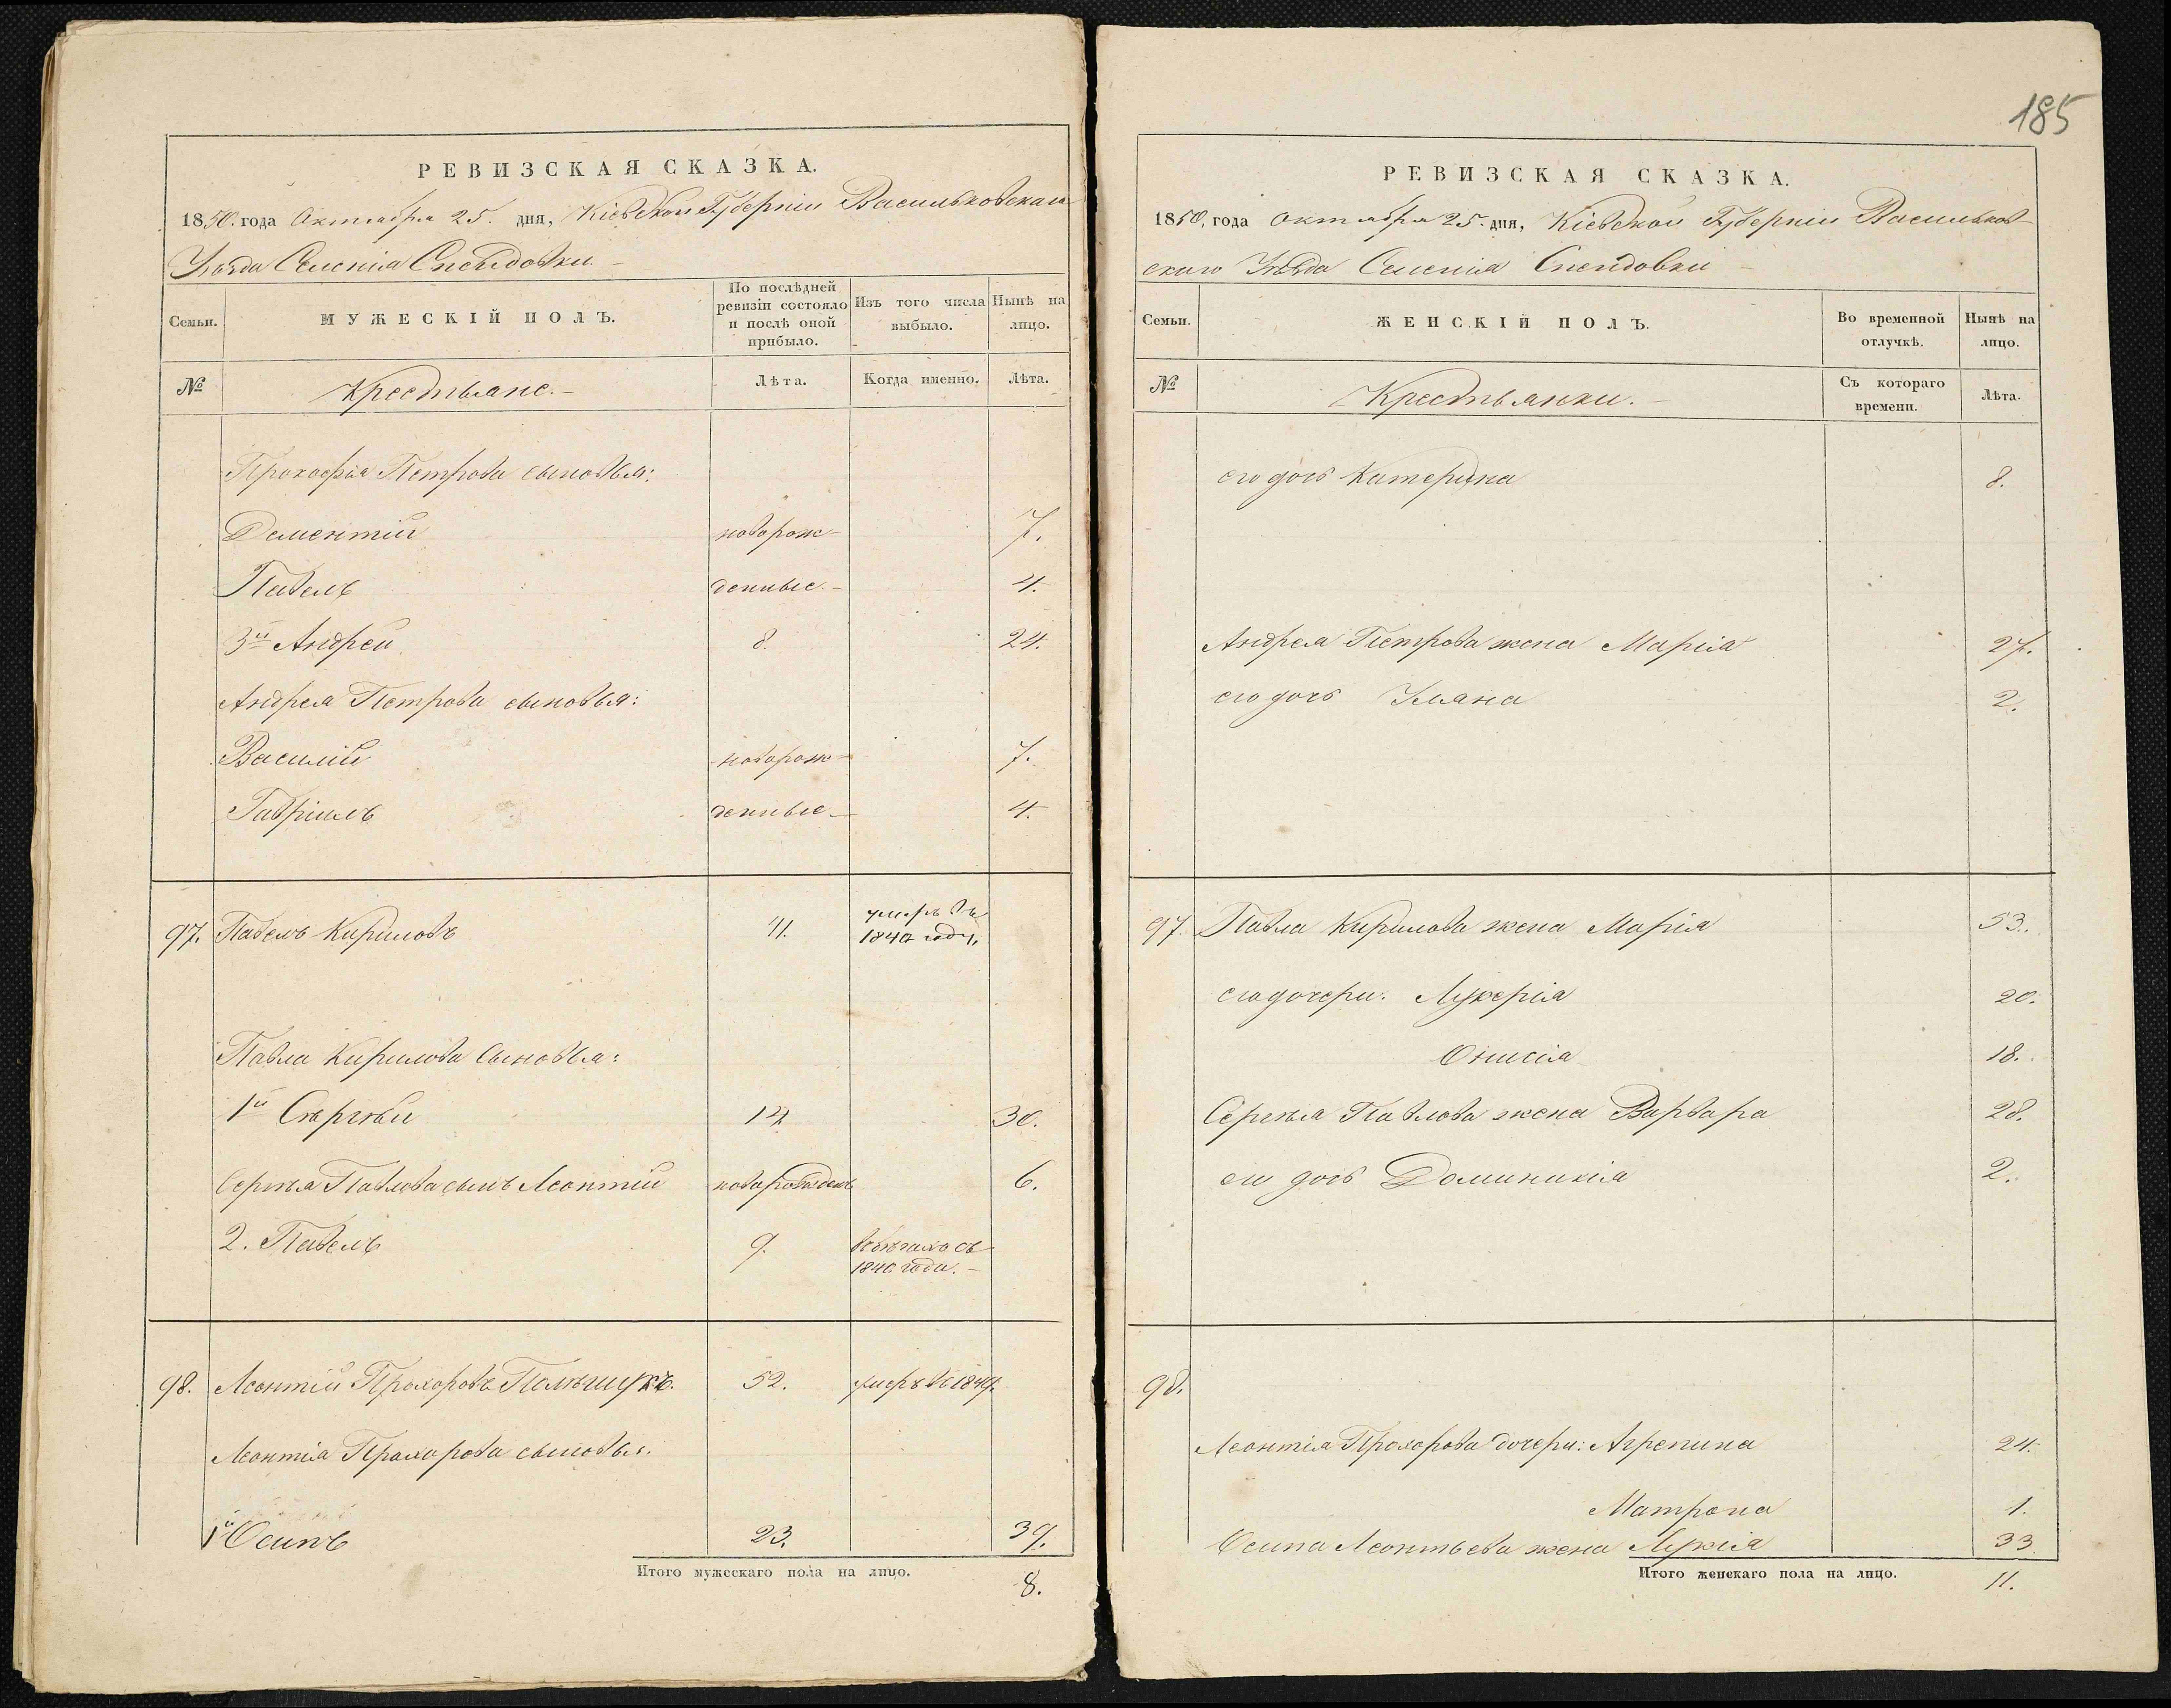 РЕВИЗСКАЯ СКАЗКА.
1850. года Октября 25. дня, Кіевской Губерніи Васильковскаго
Уѣзда Селенія Спендовки.
Семьи.
МУЖЕСКІЙ ПОЛЪ.
По послѣдней ревизіи состояло и послѣ оной прибыло.
Изъ того числа выбыло.
Нынѣ на лицо.
№
Крестьяне.
Лѣта.
Когда именно.
Лѣта.
Прокофія Петрова сыновья:
Дементій новорож- 7.
Павелъ денные. 4.
3й Андрей 8. 24.
Андрея Петрова сыновья:
Василій новорож- 7.
Гавріилъ денные 4.
97. Павелъ Кириловъ 41. умеръ въ
году.
Павла Кирилова сыновья:
1й Сергѣй 14 30.
Сергѣя Павлова сынъ Леонтій новорожденъ 6.
2. Павелъ 9. въ бѣгахъ съ
1840 года.
98. Леонтій Прохоровъ Полѣщукъ. 52. умеръ въ
Леонтія Прохорова сыновья.
1й Осипъ 23. 39.
Итого мужескаго пола на лицо. 8.
185
РЕВИЗСКАЯ СКАЗКА.
1850. года Октября 25. дня, Кіевской Губерніи Васильков-
скаго Уѣзда Селенія Спендовки
Семьи.
ЖЕНСКІЙ ПОЛЪ.
Во временной отлучкѣ.
Нынѣ на лицо.
№
Крестьянки.
Съ котораго времени.
Лѣта.
его дочь Катерина 8.
Андрея Петрова жена Марія 27.
его дочь Уляна 2.
97. Павла Кирилова жена Марія 53.
его дочери: Лукерія 20.
Онисія 18.
Сергѣя Павлова жена Варвара 28.
его дочь Доминикія 2.
98.
Леонтія Прохорова дочери: Агрепина 24.
Матрона 1.
Осипа Леонтьева жена Лукія 33
Итого женскаго пола на лицо. 11.